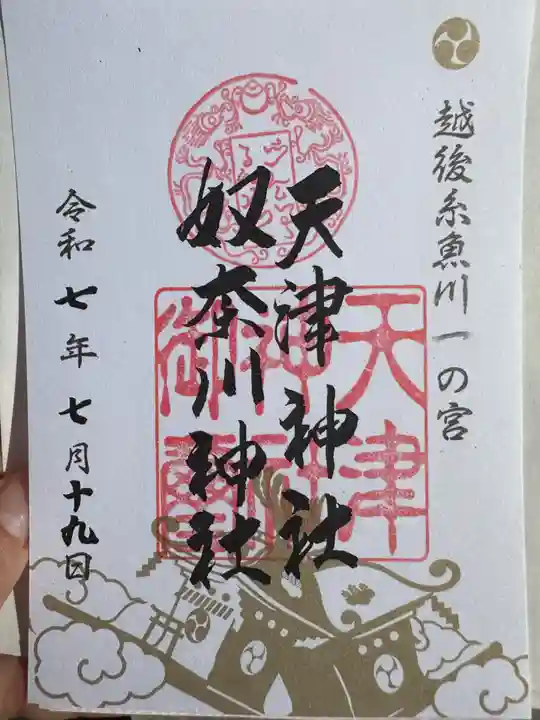 越後糸魚川一の宮
天津神社
奴奈川神社
天津
神社
御璽
令和七年七月十九日